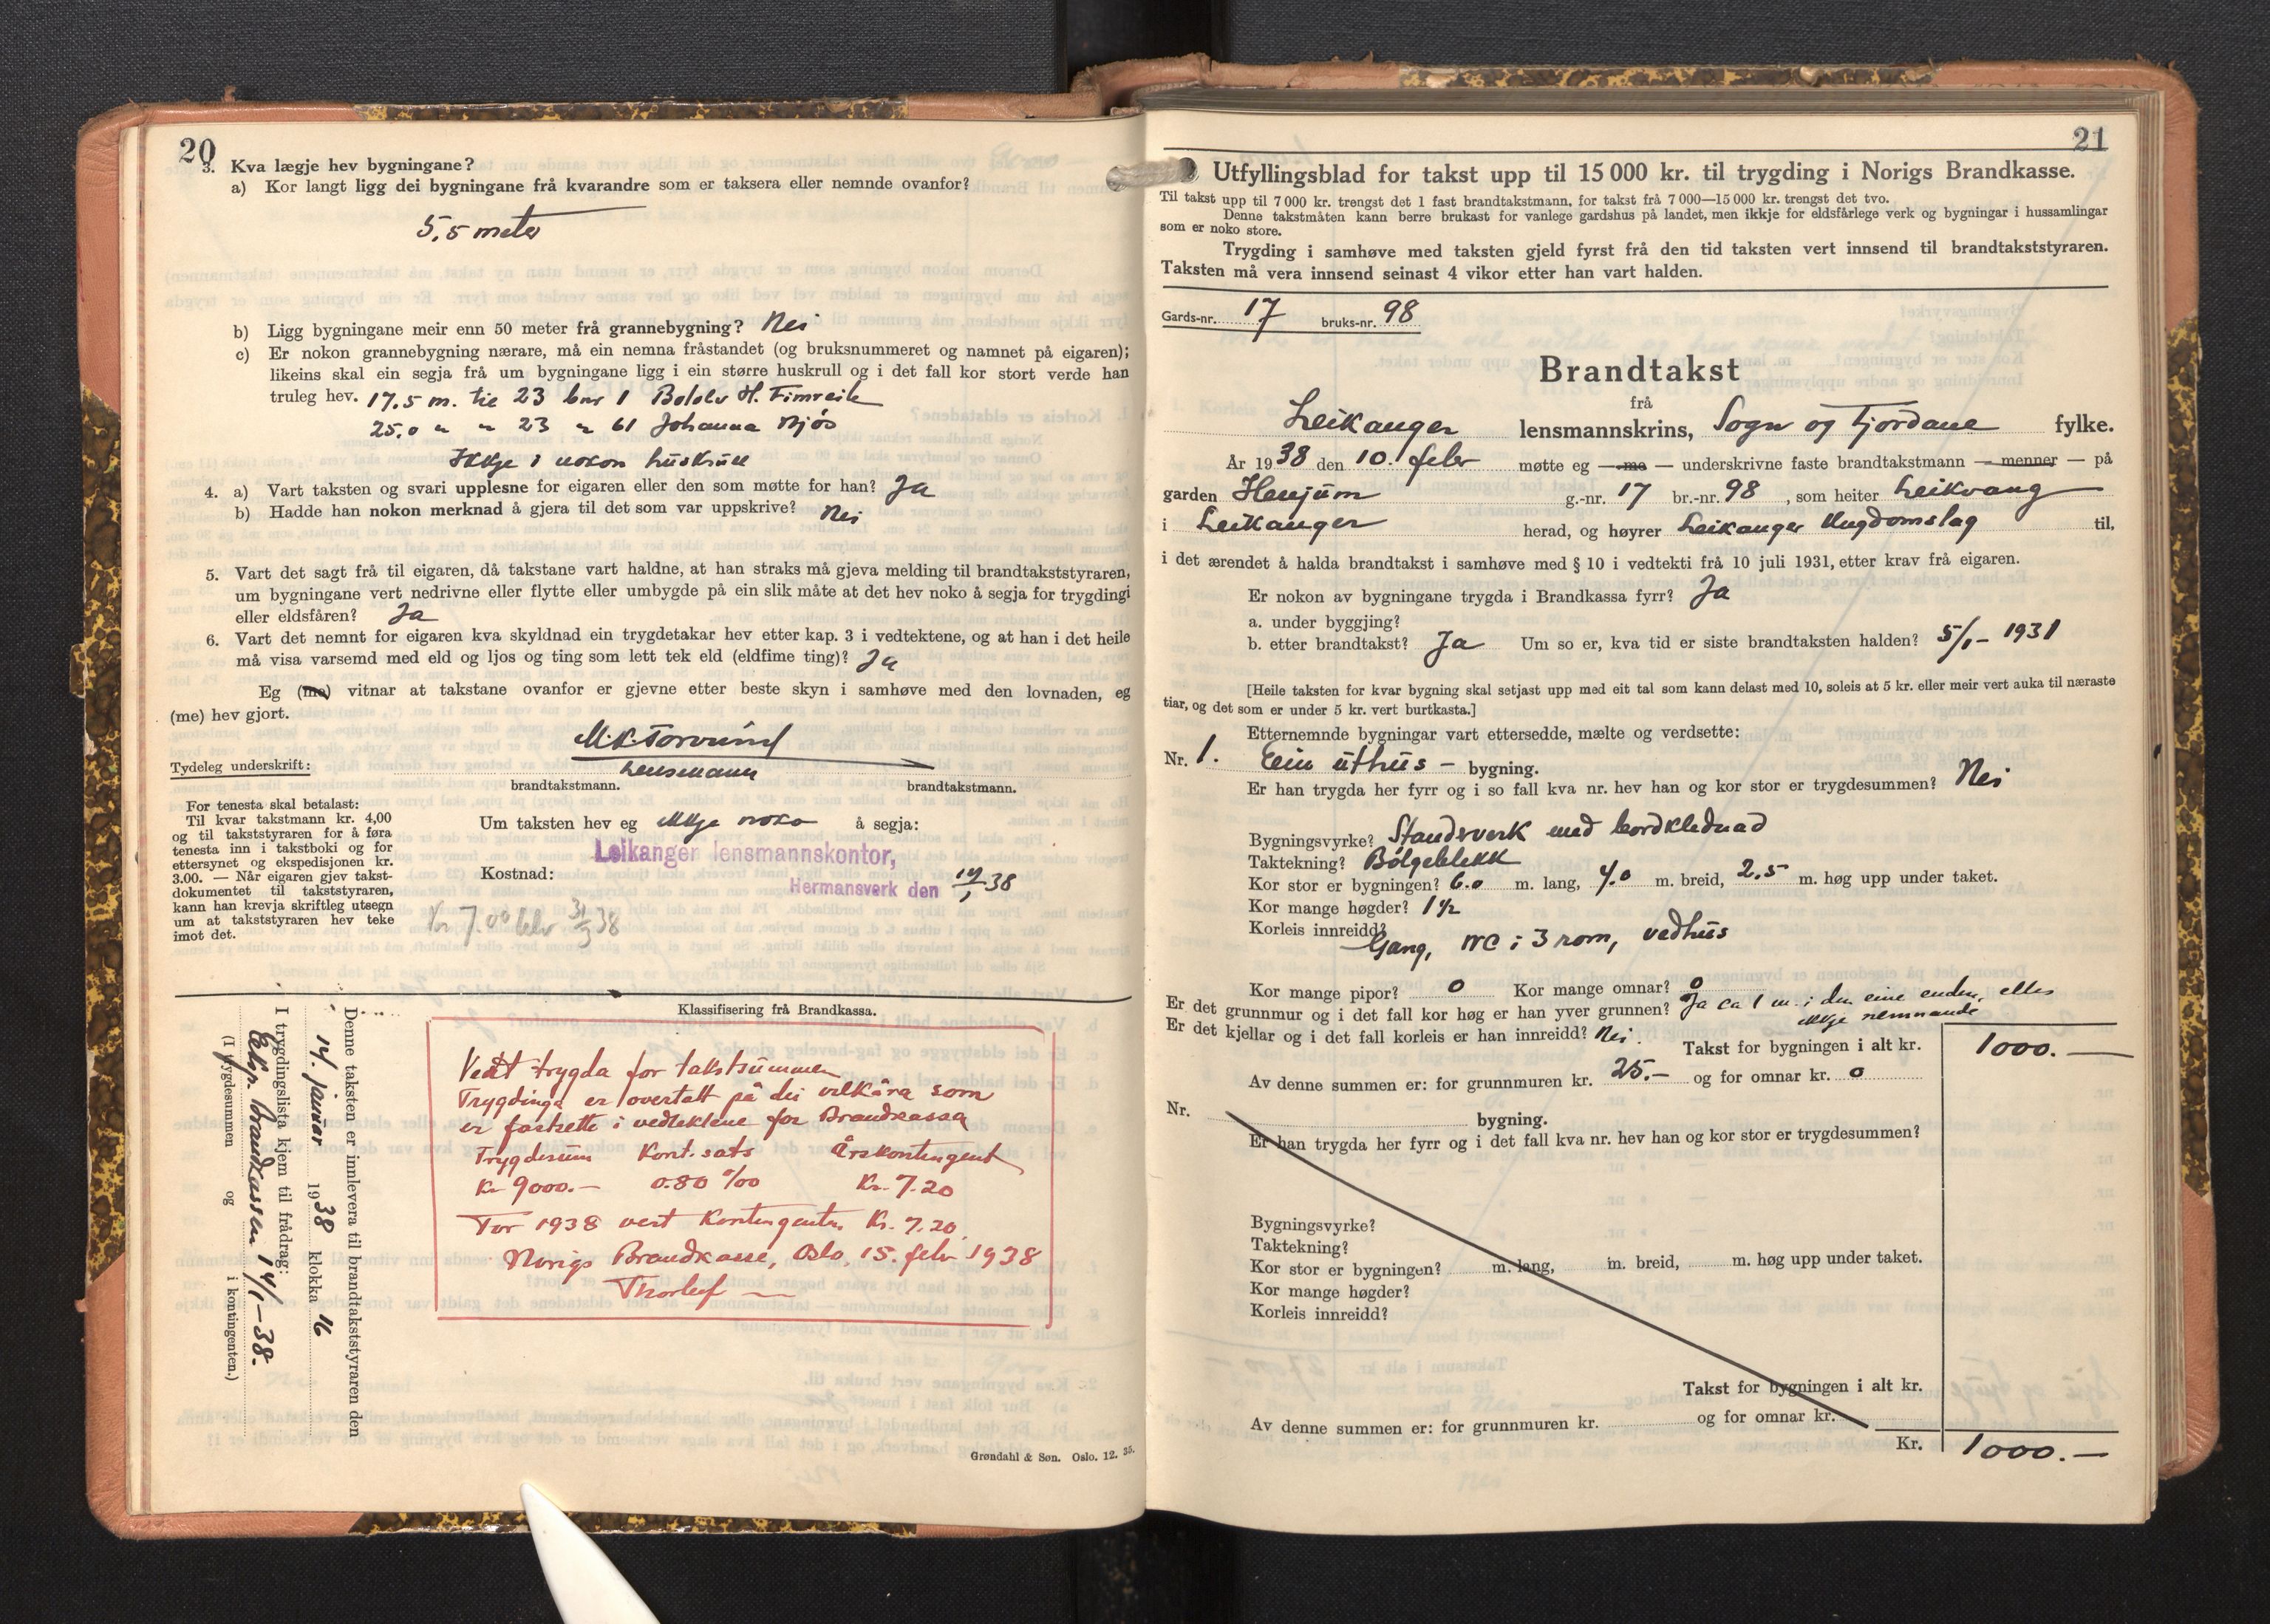 20
3. Kva lægje hev bygningane?
a) Kor langt ligg dei bygningane frå kvarandre som er taksera eller nemnde ovanfor?
5,5 meter
b) Ligg bygningane meir enn 50 meter frå grannebygning? Nei
c) Er nokon grannebygning nærare, må ein nemna fråstandet (og bruksnummeret og namnet på eigaren);
likeins skal ein segja frå um bygningane ligg i ein større huskrull og i det fall kor stort verde han
truleg hev. 17.5 m. til 23 bnr 1 Bololv H. Fimreite
25.0 " " 23 " 61 Johanna Njøs
Ikkje i nokon huskrull
4. a) Vart taksten og svari upplesne for eigaren eller den som møtte for han? Ja
b) Hadde han nokon merknad å gjera til det som var uppskrive? Nei
5. Vart det sagt frå til eigaren, då takstane vart haldne, at han straks må gjeva melding til brandtakststyraren,
um bygningane vert nedrivne eller flytte eller umbygde på ein slik måte at det hev noko å segja for trygdingi
eller eldsfåren? Ja
6. Vart det nemnt for eigaren kva skyldnad ein trygdetakar hev etter kap. 3 i vedtektene, og at han i det heile
må visa varsemd med eld og ljos og ting som lett tek eld (eldfime ting)? Ja
Eg (me) vitnar at takstane ovanfor er gjevne etter beste skyn i samhøve med den lovnaden, eg
(me) hev gjort.
M.K. Torvund
Tydeleg underskrift:
Lensmann
brandtakstmann. brandtakstmann.
For tenesta skal betalast:
Til kvar takstmann kr. 4,00
og til takststyraren for å føra
tenesta inn i takstboki og for
ettersynet og ekspedisjonen kr.
3.00. — Når eigaren gjev takst-
dokumentet til takststyraren,
kann han krevja skriftleg utsegn
um at takststyraren hev teke
imot det.
Um taksten hev eg ikkje noko å segja:
Leikanger lensmannskontor,
Kostnad:
Hermansverk den 14/1 38
Kr 7.00 belv 31/3 38
Klassifisering frå Brandkassa.
Vert trygda for takstsummen
Trygdinga er overtatt på dei vilkåra som
er fastsette i vedtektene for Brandkassa
Trygdesum Kont. sats Årskontingent
Kr 9000.- 0.80 ‰ Kr. 7.20
For 1938 vert kontingenten Kr. 7.20
Norigs Brandkasse, Oslo, 15. febr 1938
Denne taksten er innlevera til brandtakststyraren den
14. januar 1938 klokka 16
I trygdingslista kjem til frådrag:
Eksp. Brandkassen 14/1-38.
(I trygdesummen og i kontingenten.)
Grøndahl & Søn. Oslo. 12. 35.
21
Utfyllingsblad for takst upp til 15 000 kr. til trygding i Norigs Brandkasse.
Til takst upp til 7 000 kr. trengst det 1 fast brandtakstmann, for takst frå 7 000—15 000 kr. trengst det tvo.
Denne takstmåten kann berre brukast for vanlege gardshus på landet, men ikkje for eldsfårlege verk og bygningar i hussamlingar
som er noko store.
Trygding i samhøve med taksten gjeld fyrst frå den tid taksten vert innsend til brandtakststyraren.
Taksten må vera innsend seinast 4 vikor etter han vart halden.
Gards-nr. 17 bruks-nr. 98
Brandtakst
frå
Leikanger lensmannskrins, Sogn og Fjordane fylke.
År 1938 den 10. febr møtte eg — me — underskrivne faste brandtakstmann — menner — på
garden Henjum g.-nr. 17 br.-nr. 98, som heiter Leikvang
i Leikanger herad, og høyrer Leikanger Ungdomslag til,
i det ærendet å halda brandtakst i samhøve med § 10 i vedtekti frå 10 juli 1931, etter krav frå eigaren.
Er nokon av bygningane trygda i Brandkassa fyrr? Ja
a. under byggjing?
b. etter brandtakst? Ja Um so er, kva tid er siste brandtaksten halden? 5/1- 1931
[Heile taksten for kvar bygning skal setjast upp med eit tal som kann delast med 10, soleis at 5 kr. eller meir vert auka til næraste
tiar, og det som er under 5 kr. vert burtkasta.]
Etternemnde bygningar vart ettersedde, mælte og verdsette:
Nr. 1. Ein uthus - bygning.
Er han trygda her fyrr og i so fall kva nr. hev han og kor stor er trygdesummen? Nei
Bygningsvyrke? Standsverk med bordklednad
Taktekning? Bølgeblekk
Kor stor er bygningen? 6.0 m. lang, 4.0 m. breid, 2.5 m. høg upp under taket.
Kor mange høgder? 1½
Korleis innreidd?
Gang, WC i 3 rom, vedhus
Kor mange pipor? 0 Kor mange omnar? 0
Er det grunnmur og i det fall kor høg er han yver grunnen? Ja ca 1 m. i den eine enden, elles
ikkje nemnande
Er det kjellar og i det fall korleis er han innreidd? Nei.
Takst for bygningen i alt kr. 1000.—
Av denne summen er: for grunnmuren kr. 25.- og for omnar kr. 0
Nr. bygning.
Er han trygda her fyrr og i det fall kva nr. hev han og kor stor er trygdesummen?
Bygningsvyrke?
Taktekning?
Kor stor er bygningen? m. lang, m. breid, m. høg upp under taket.
Kor mange høgder?
Korleis innreidd?
Takst for bygningen i alt kr.
Av denne summen er: for grunnmuren kr. og for omnar kr.
Kr. 1000.—